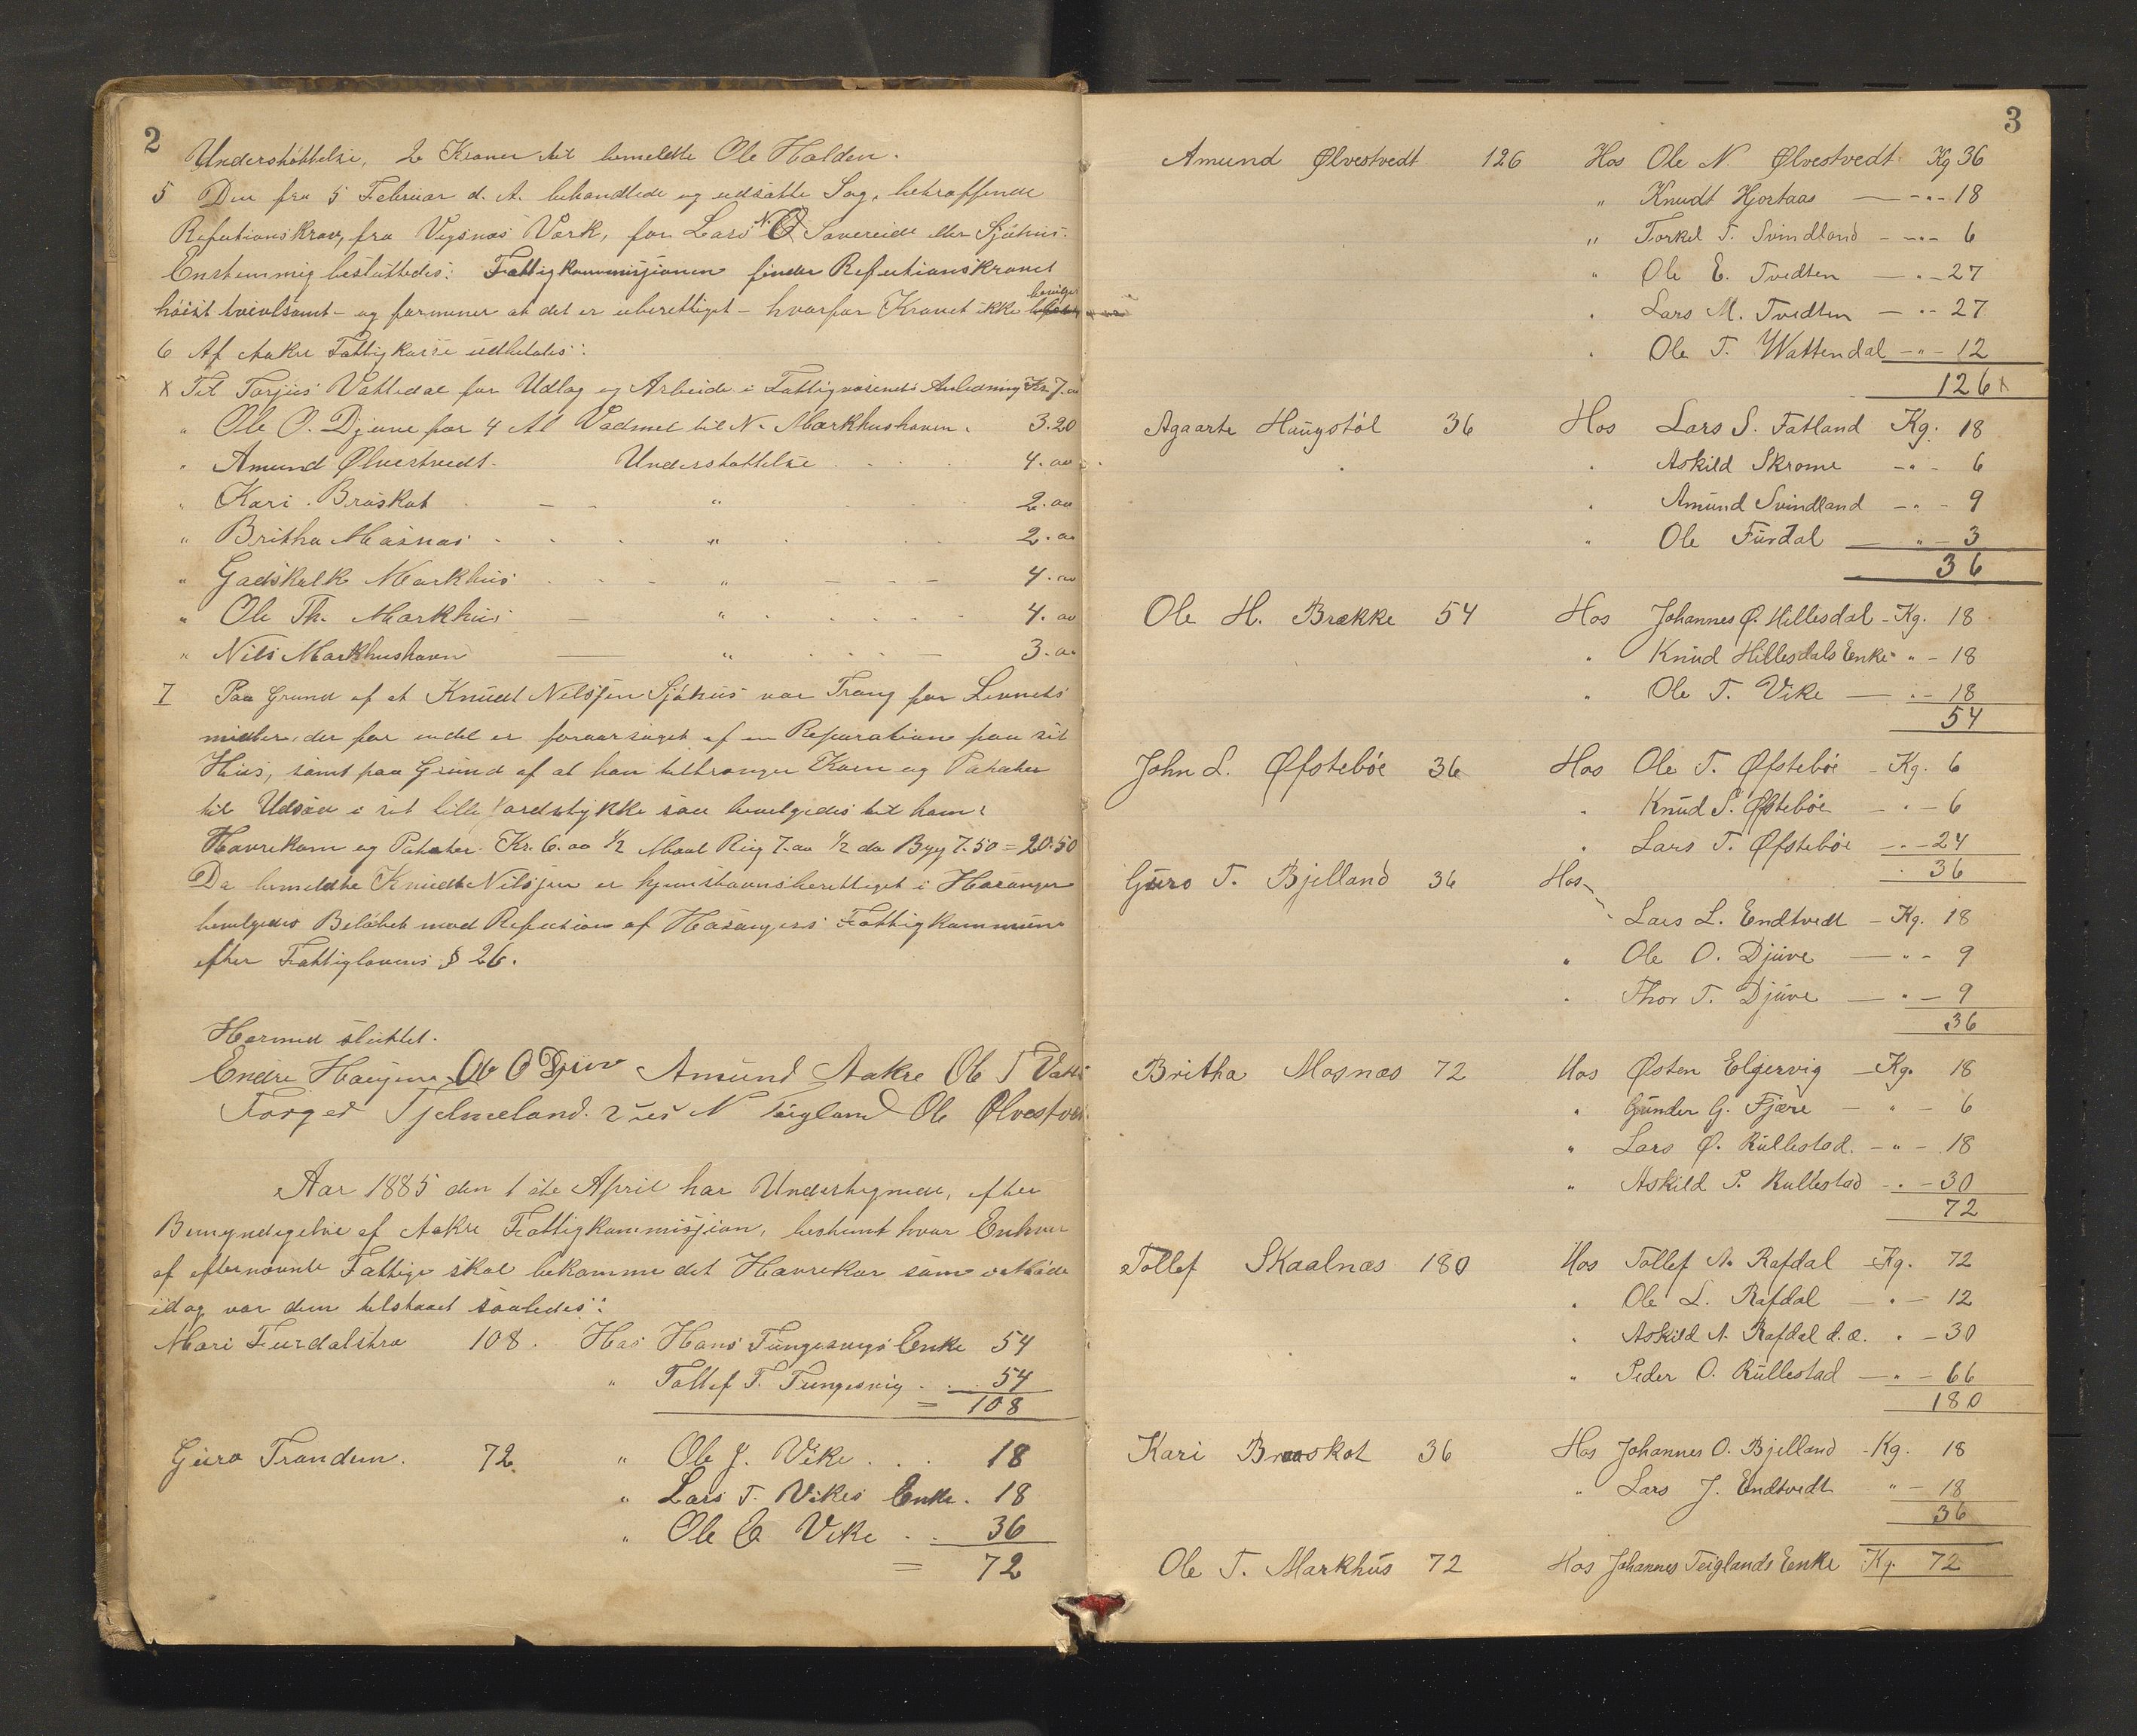 2
Understøttelse, 2 Kroner til bemeldte Ole Halden.
5 Den fra 5 Februar d. A. behandlede og udsatte Sag, betræffende
Refutionskrav, fra Vigsnæs Værk, for Lars N. Sævereide eller Sjøhus.
Enstemmig besluttedes: Fattigkommisjionen finder Refutionskravet
høist tvivlsomt - og formener at det er uberettiget - hvorfor Kravet ikke
6 Af Aakre Fattigkasse udbetales:
x Til Torjus Vattedal for Udlæg og Arbeide i Fattigvæsenets Anledning Kr. 7.00
" Ole O. Djuve for 4 Al Vadmel til N. Markhushavn. 3.20
" Amund Ølvestvedt. Understøttelse . . . 4.00
" Kari Braskot . - - " . . 2.00
" Britha Masnæs . . . " . . . 2.00
" Gadskalk Markhus . . - " - - - 4.00
" Ole Th. Markhus - " . . . . 4.00
" Nils Markhushavn - " . . . - 3.00
7 Paa Grund af at Knudt Nilsjen Sjøhus var Trang for Livnets
midler, der for endel er foraarsaget af en Reparation paa sit
Hus, samt paa Grund af at han tiltrænger Korn og Poteter
til Udsæd i sit lille Jordstykke saa bevilgedes til ham:
Havrekorn og Poteter Kr. 6.00 1/2 Maal Rug 7.00 1/2 do Byg 7.50 = 20.50
Da bemeldte Knudt Nilsjen er hjemstavnsberettiget i Hosanger
bevilgedes Beløbet mod Refution af Hosangers Fattigkommune
efter Fattiglovens § 26.
Hermed sluttet.
Endre Haugen Ole O Djuv Amund Aakre Ole T Vatte
Torger Tjelmeland. N Teigland Ole Ølvestve
Aar 1885 den 1ste April har Undertegnede, efter
Bemyndigelse af Aakre Fattigkommisjion, bestemt hvor Enhver
af efternævnte Fattige skal bekomme det Havrekor som
idag var dem tilstaaet saaledes:
Mari Furdalstra 108. Hos Hans Tungesvigs Enke 54
" Tollef T. Tungesvig . . 54
= 108
Guro Tranden. 72 " Ole J. Vike . . . 18
" Lars T. Vikes Enke. 18
" Ole E Vike . . 36
= 72
3
Amund Ølvestvedt 126 Hos Ole N Ølvestvedt Kg 36
" Knudt Hjortaas - " - 18
" Torkel T. Svindland - " - 6
" Ole E. Tvedten - " - 27
" Lars M. Tvedten - " - 27
" Ole T. Wattendal - " - 12
126 x
Agaarte Haugstøl 36 Hos Lars S. Fatland Kg. 18
" Askild Skrome - " - 6
" Amund Svindland - " - 9
" Ole Furdal - " - 3
36
Ole H. Brække 54 Hos Johannes Ø. Hillesdal - Kg. 18
" Knud Hillesdals Enke " - 18
" Ole T. Vike - " - 18
54
John L. Øfstebøe 36 Hos Ole T. Øfstebøe - Kg. 6
" Knud S. Øfstebøe - " - 6
" Lars T. Øfstebøe - " - 24
36
Guro T. Bjelland 36 Hos
Lars L. Endtvedt - Kg. 18
" Ole O. Djuve - " - 9
" Thor T. Djuve - " - 9
36
Britha Mosnæs 72 Hos Østen Elgervig - Kg. 18
" Gunder G. Fjære - " - 6
" Lars Ø. Rullestad. - " - 18
" Askild P. Rullestad - " - 30
72
Tollef Skaalnæs 180 Hos Tollef A. Rafdal - Kg. 72
" Ole L. Rafdal - " - 12
" Askild A. Rafdal d. æ. " - 30
" Peder O. Rullestad - " - 66
180
Kari Braaskot 36 Hos Johannes O. Bjelland - Kg. 18
" Lars J. Endtvedt " - 18
36
Ole T. Markhus 72 Hos Johannes Teiglands Enke Kg. 72